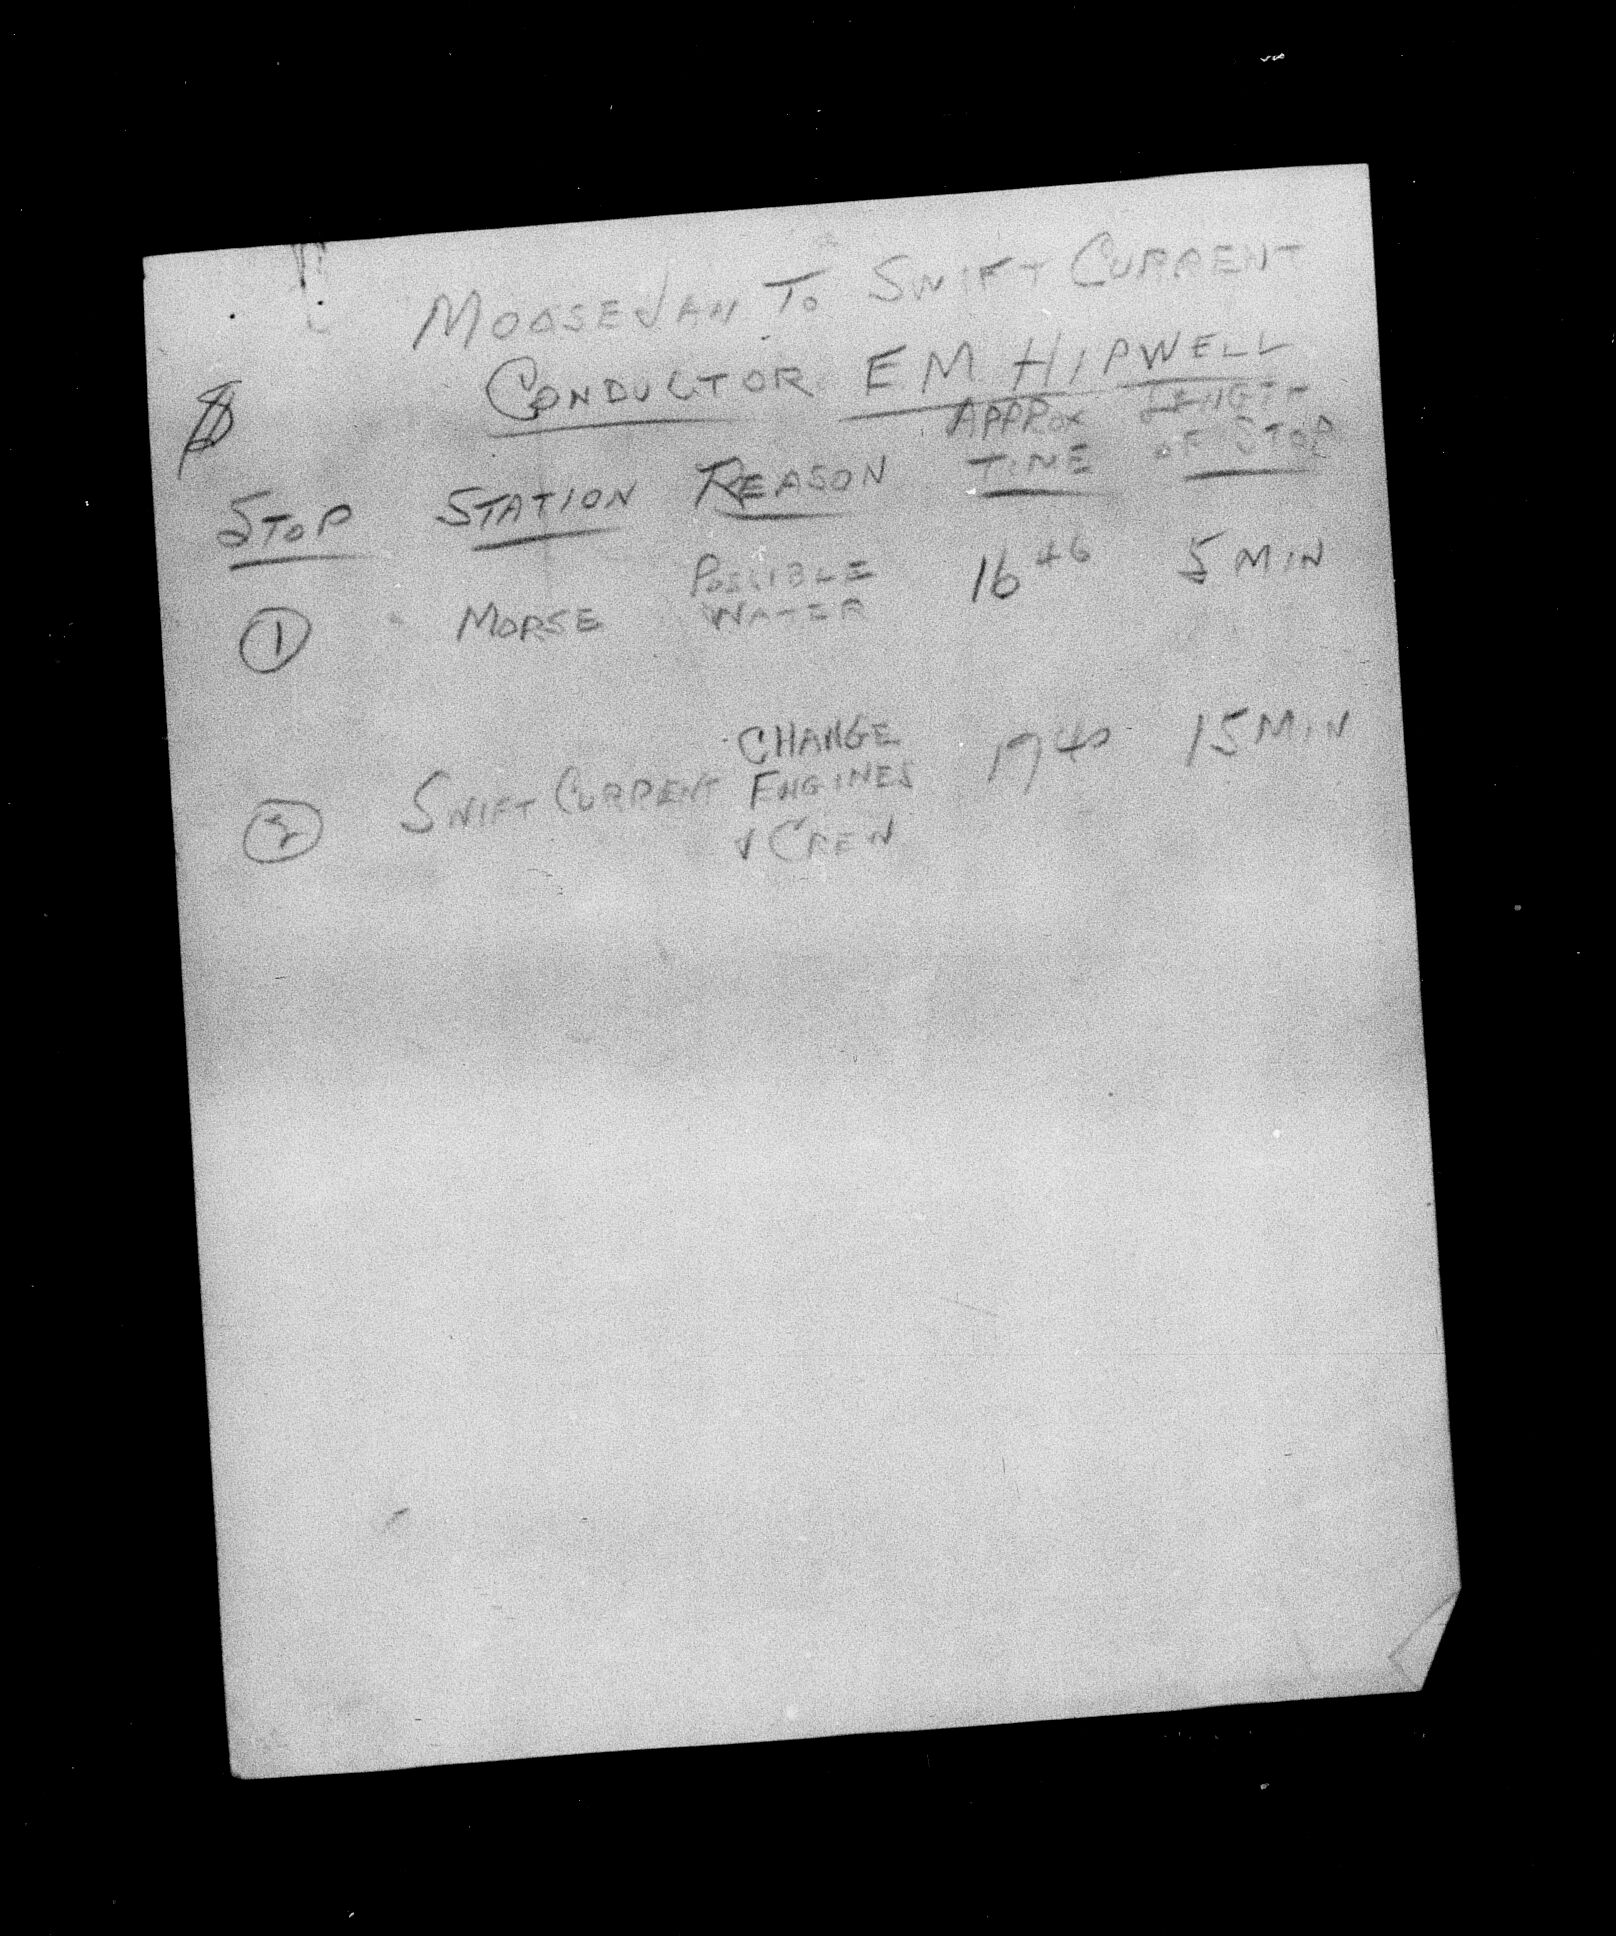 MOOSEJAW TO SWIFT CURRENT
CONDUCTOR E M HIPWELL
STOP STATION REASON APPROX TIME LENGTH OF STOP
① MORSE POSSIBLE WATER 16 46 5 MIN
② SWIFT CURRENT CHANGE ENGINES & CREW 17 40 15 MIN